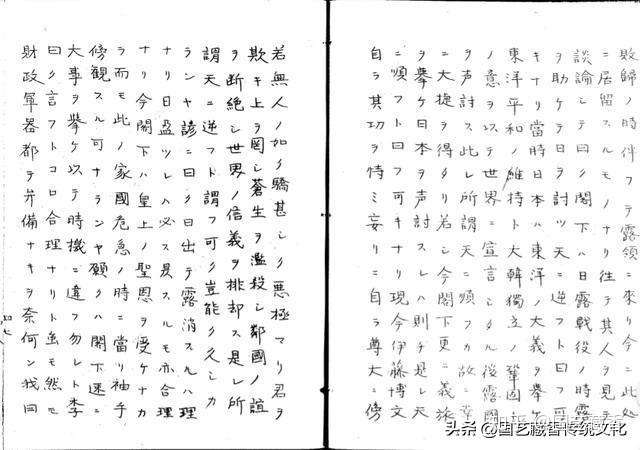 敗歸ノ時伴フテ露領ニ來リ今ニ此処
ニ居留スルモノナリ往テ其人ヲ見テ
談論シテ曰ク閣下ハ日露戰役ノ時露
ヲ助ケテ日ヲ討ツ天ニ逆フト曰フ可
キナリ當時日本ハ東洋ノ大義ヲ擧ケ
東洋平和ノ維持ト大韓獨立ノ鞏固ト
ノ意ヲ以テ世界ニ宣言シタル後露國
ヲ声討ス此レ所謂天ニ順フ故ニ幸
ニ大捷ヲ得タリ若シ今閣下更ニ義旅
ヲ擧ケ日本ヲ声討スレハ則チ是レ天
ニ順フト曰フ可キナリ現今伊藤博文
自ラ其功ヲ恃ミ妄リニ自ラ尊大ニ傍
若無人ノ如ク驕甚シク悪極マリ君ヲ
欺キ上ヲ罔シ蒼生ヲ濫殺シ鄰國ノ誼
ヲ断絶シ世界ノ信義ヲ排却ス是レ所
謂天ニ逆フト謂フ可ク豈能ク久シカ
ランヤ諺ニ曰ク日出テ露消スルハ理
ナリ日盈ツレハ必ス昃スルモ亦合理
ナリ今閣下ハ皇上ノ聖恩ヲ受ケナカ
ラ而モ此ノ家國危急ノ時ニ當リ袖手
傍観スル可ナランヤ願クハ閣下速ニ
大事ヲ擧ケ以テ時機ニ違フ勿レト李
曰ク言フトコロ合理ナリト虽モ然レ
財政軍器都テ弁備ナキヲ奈何ン我曰
头条@国艺藏智传统文化